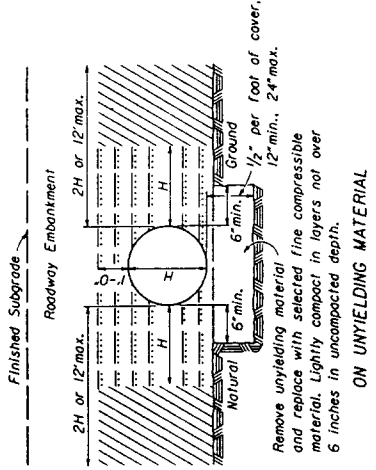 Finished Subgrade
Roadway Embankment
2H or 12' max.
2H or 12' max.
1'-0"
H
H
H
6" min.
6" min.
Natural
Ground
1/2" per foot of cover,
12" min., 24" max.
Remove unyielding material
and replace with selected fine compressible
material. Lightly compact in layers not over
6 inches in uncompacted depth.
ON UNYIELDING MATERIAL